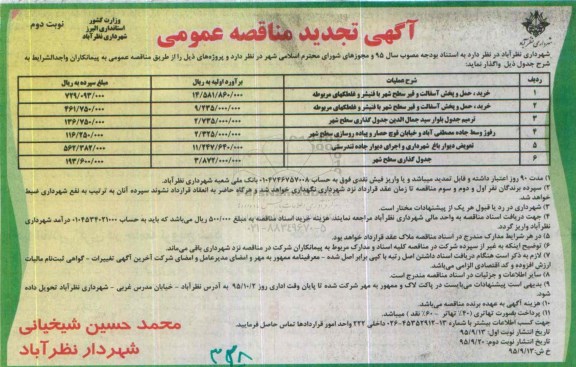 نوبت دوم
وزارت کشور
استانداری البرز
شهرداری نظرآباد
آگهی تجدید مناقصه عمومی
شهرداری نظرآباد
شهرداری نظرآباد در نظر دارد به استناد بودجه مصوب سال ۹۵ و مجوزهای شورای محترم اسلامی شهر در نظر دارد و پروژه‌های ذیل را از طریق مناقصه عمومی به پیمانکاران واجدالشرایط به
شرح جدول ذیل واگذار نماید:
ردیف شرح عملیات برآورد اولیه به ریال مبلغ سپرده به ریال
۱ خرید ، حمل و پخش آسفالت و قیر سطح شهر با فنیشر و غلطکهای مربوطه ۱۴/۵۸۱/۸۶۰/۰۰۰ ۷۲۹/۰۹۳/۰۰۰
۲ خرید ، حمل و پخش آسفالت و قیر سطح شهر با فنیشر و غلطکهای مربوطه ۹/۲۳۵/۰۰۰/۰۰۰ ۴۶۱/۷۵۰/۰۰۰
۳ ترمیم جدول بلوار سید جمال الدین جدول گذاری سطح شهر ۲/۷۳۵/۰۰۰/۰۰۰ ۱۳۶/۷۵۰/۰۰۰
۴ رفوژ وسط جاده مصطفی آباد و خیابان فرخ حصار و پیاده روسازی سطح شهر ۲/۳۲۵/۰۰۰/۰۰۰ ۱۱۶/۲۵۰/۰۰۰
۵ تعویض دیوار باغ شهرداری و اجرای دیوار جاده تندرستی ۱۱/۲۴۷/۶۴۰/۰۰۰ ۵۶۲/۳۸۲/۰۰۰
۶ جدول گذاری سطح شهر ۳/۸۷۲/۰۰۰/۰۰۰ ۱۹۳/۶۰۰/۰۰۰
۱) مدت ۹۰ روز اعتبار داشته و قابل تمدید میباشد و یا واریز فیش نقدی فوق به حساب ۰۱۰۴۷۴۶۷۵۷۰۰۸ بانک ملی شعبه شهرداری نظرآباد.
۲) سپرده برندگان نفر اول و دوم و سوم مناقصه تا زمان عقد قرارداد نزد شهرداری نگهداری خواهد شد و هرگاه حاضر به انعقاد قرارداد نشوند سپرده آنان به ترتیب به نفع شهرداری ضبط
خواهد شد.
۳) شهرداری در رد یا قبول هر یک از پیشنهادات مختار است.
۴) جهت دریافت اسناد مناقصه به واحد مالی شهرداری نظرآباد مراجعه نمایند. هزینه خرید اسناد مناقصه به مبلغ ۵۰۰/۰۰۰ ریال می‌باشد که باید به حساب ۰۱۰۴۵۳۴۰۲۱۰۰۰ درآمد شهرداری
نظرآباد واریز گردد.
۵) در هر شرایط مدارک مندرج در اسناد مناقصه ملاک عقد قرارداد خواهد بود.
۶) توضیح اینکه به غیر از سپرده شرکت در مناقصه کلیه اسناد و مدارک مربوط به پیمانکاران شرکت در مناقصه نزد شهرداری باقی می‌ماند.
۷) لازم به ذکر است هنگام دریافت اسناد داشتن اصل رتبه با کپی برابر اصل شده - معرفینامه ممهور به مهر و امضای مدیرعامل و امضای شرکت آخرین آگهی تغییرات - گواهی ثبت‌نام مالیات
ارزش افزوده و کد اقتصادی الزامی می‌باشد.
۸) سایر اطلاعات و جزئیات در اسناد مناقصه مندرج است.
۹) بدیهی است پیشنهادات می‌بایست در پاکت لاک و ممهور به مهر شرکت شده تا پایان وقت اداری روز ۹۵/۱۰/۲ به آدرس نظرآباد - خیابان مدرس غربی - شهرداری نظرآباد تحویل داده
شود.
۱۰) هزینه آگهی به عهده برنده مناقصه می‌باشد.
۱۱) پرداخت بصورت تهاتری (۴۰٪ تهاتر - ۶۰٪ نقد) میباشد.
جهت کسب اطلاعات بیشتر با شماره ۱۳-۴۵۳۵۲۹۱۲-۰۲۶ داخلی ۲۲۲ واحد امور قراردادها تماس حاصل فرمایید.
تاریخ انتشار نوبت اول: ۹۵/۹/۱۳
تاریخ انتشار نوبت دوم: ۹۵/۹/۲۰
خ ش: ۹۵/۹/۱۳
محمد حسین شیخیانی
شهردار نظرآباد